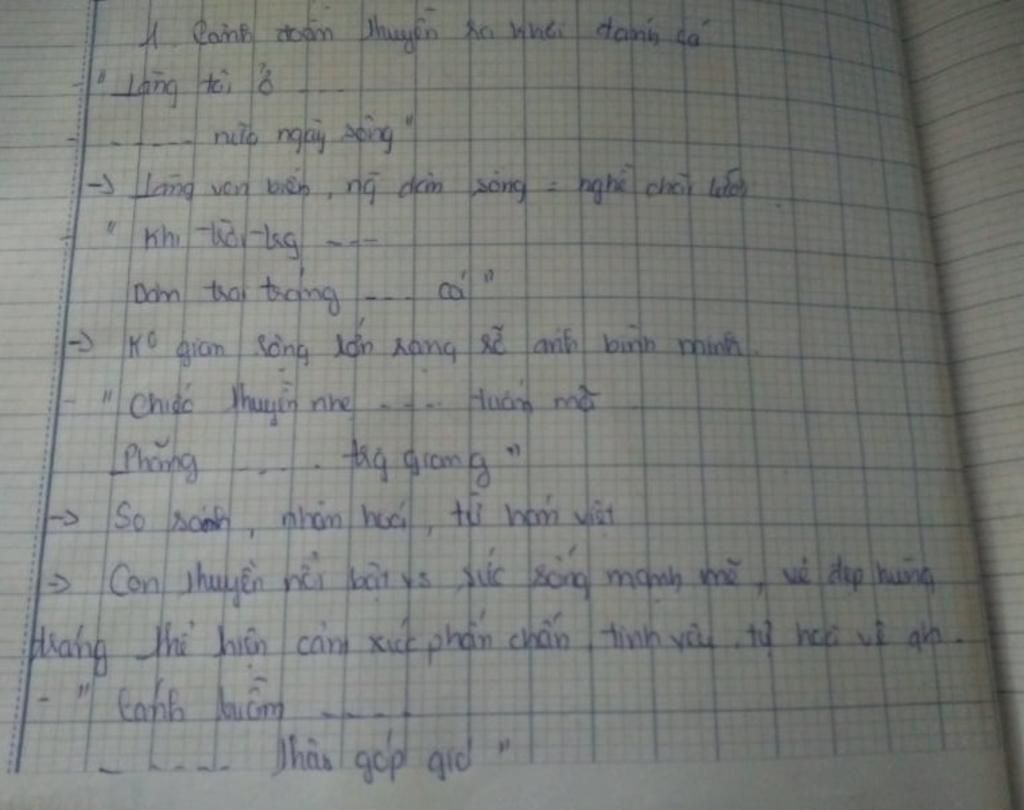 1. Cảnh đoàn thuyền ra khơi đánh cá
- " Làng tôi ở ----
- ------- nửa ngày sông"
-> Làng ven biển, ng dân sống = nghề chài lưới
- " Khi trời trg ---
Dân trai tráng ---- cá "
-> Ko gian sông lớn rạng rỡ ánh bình minh.
- " Chiếc thuyền nhẹ ---- tuấn mã
Phăng ----- trg giang "
-> So sánh, nhân hoá, từ hán việt
=> Con thuyền nổi bật vs sức sống mạnh mẽ, vẻ đẹp hùng
tráng thể hiện cảm xúc phấn chấn, tình yêu, tự hào về qh.
- " Cánh buồm -----
------- thâu góp gió "